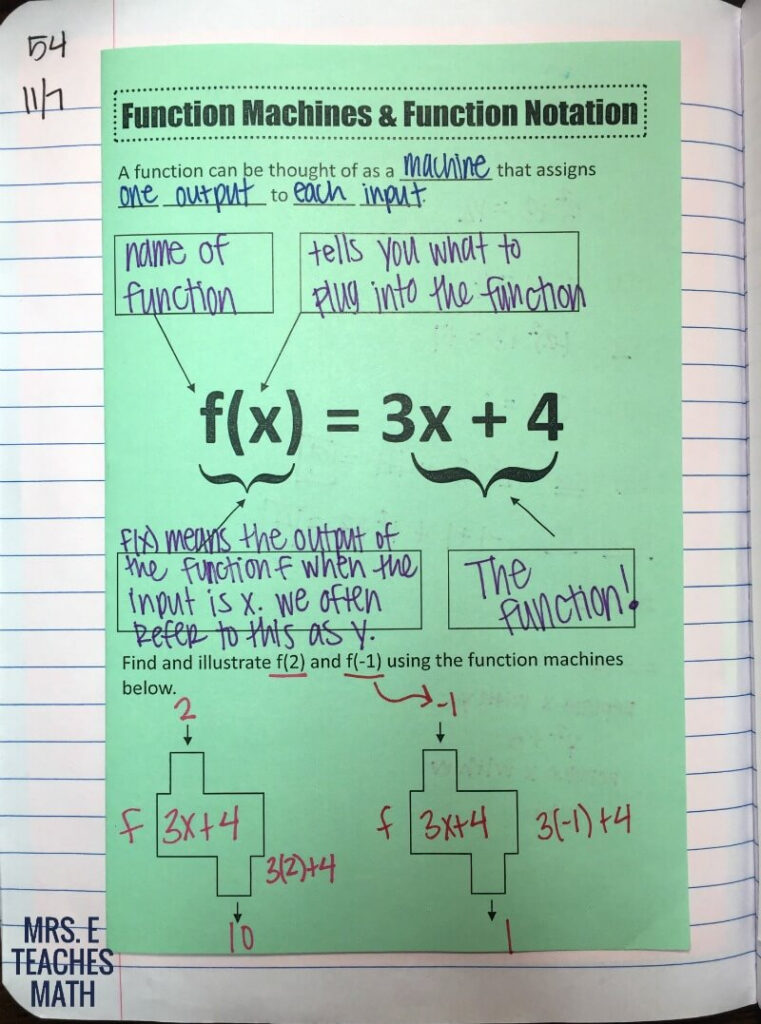 54
11/7
Function Machines & Function Notation
A function can be thought of as a machine that assigns
one output to each input.
name of
function
tells you what to
plug into the function
f(x) = 3x + 4
f(x) means the output of
the function f when the
input is x. we often
Refer to this as y.
The
function!
Find and illustrate f(2) and f(-1) using the function machines
below.
2
-1
f 3x+4
3(2)+4
10
f 3x+4 3(-1)+4
1
MRS. E
TEACHES
MATH